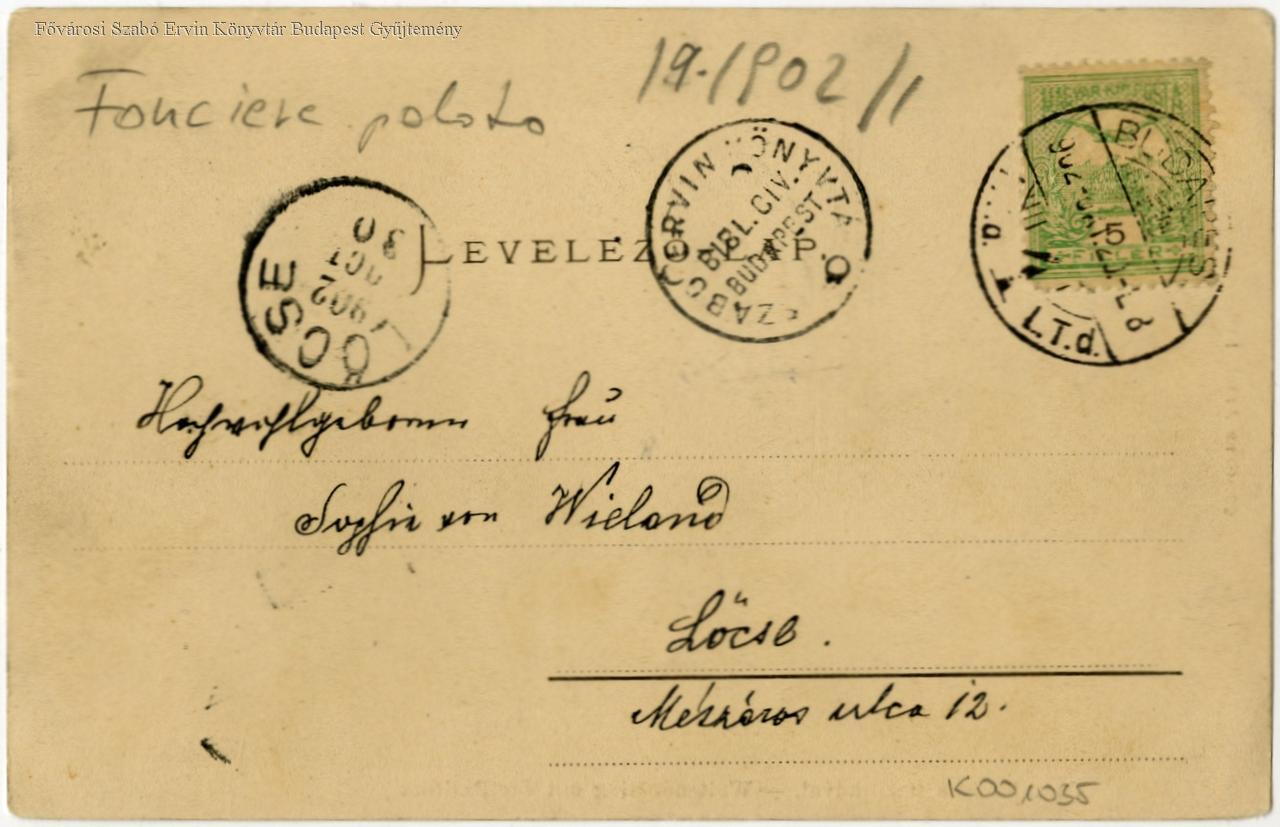 Fővárosi Szabó Ervin Könyvtár Budapest Gyűjtemény
19.1902/1
Fonciere palota
MAGYAR KIR. POSTA
5
FILLÉR
BUDAPEST
L.T.d.
SZABÓ ERVIN KÖNYVTÁR
BIBL. CIV.
BUDAPEST
LEVELEZŐ-LAP.
LŐCSE
902
OCT
30
Hochwohlgeboren Frau
Sophie von Wieland
Lőcse.
Mészáros utca 12.
K001035